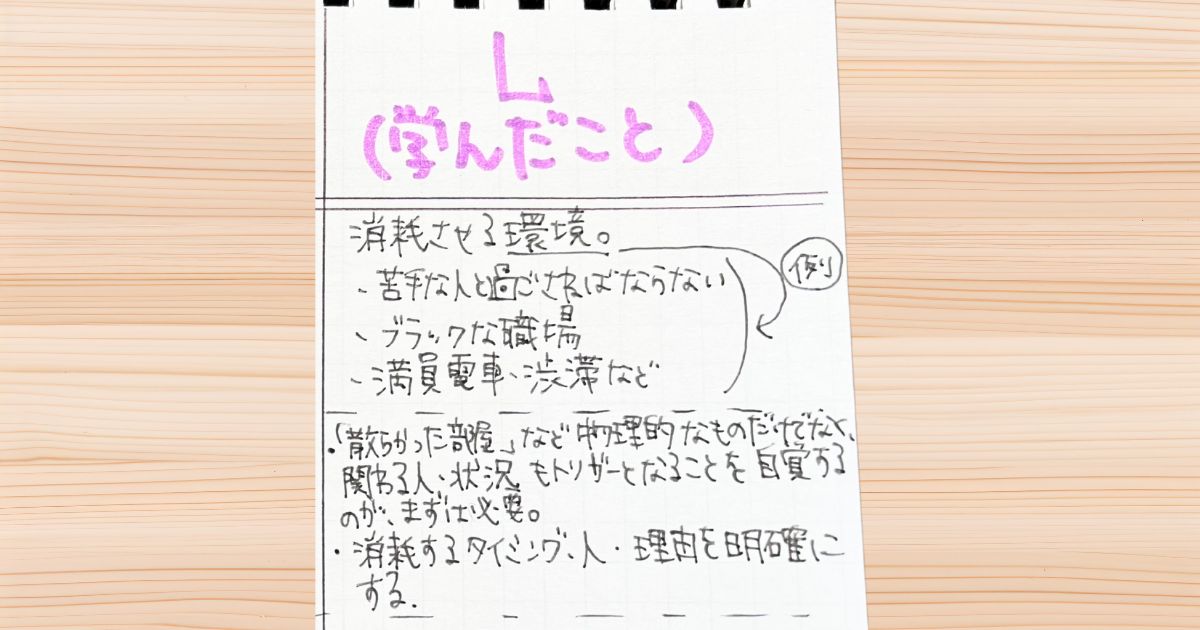 L
(学んだこと)
消耗させる環境。
例
・苦手な人と過ごさねばならない
・ブラックな職場
・満員電車・渋滞など
・「散らかった部屋」など物理的なものだけでなく、
関わる人・状況もトリガーとなることを自覚する
のが、まずは必要。
・消耗するタイミング、人・理由を明確に
する.